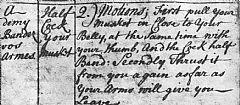 A-
demy
Bandez
vos
Armes.
Half
Cock
Your
Musk.t
2) Motions; First pull your
Musket in Close to Your
Belly, at the Same time with
your thumb, And the Cock half
Bend: Secondly Thrust it
from you again as far as
Your Arms will give you
Leave